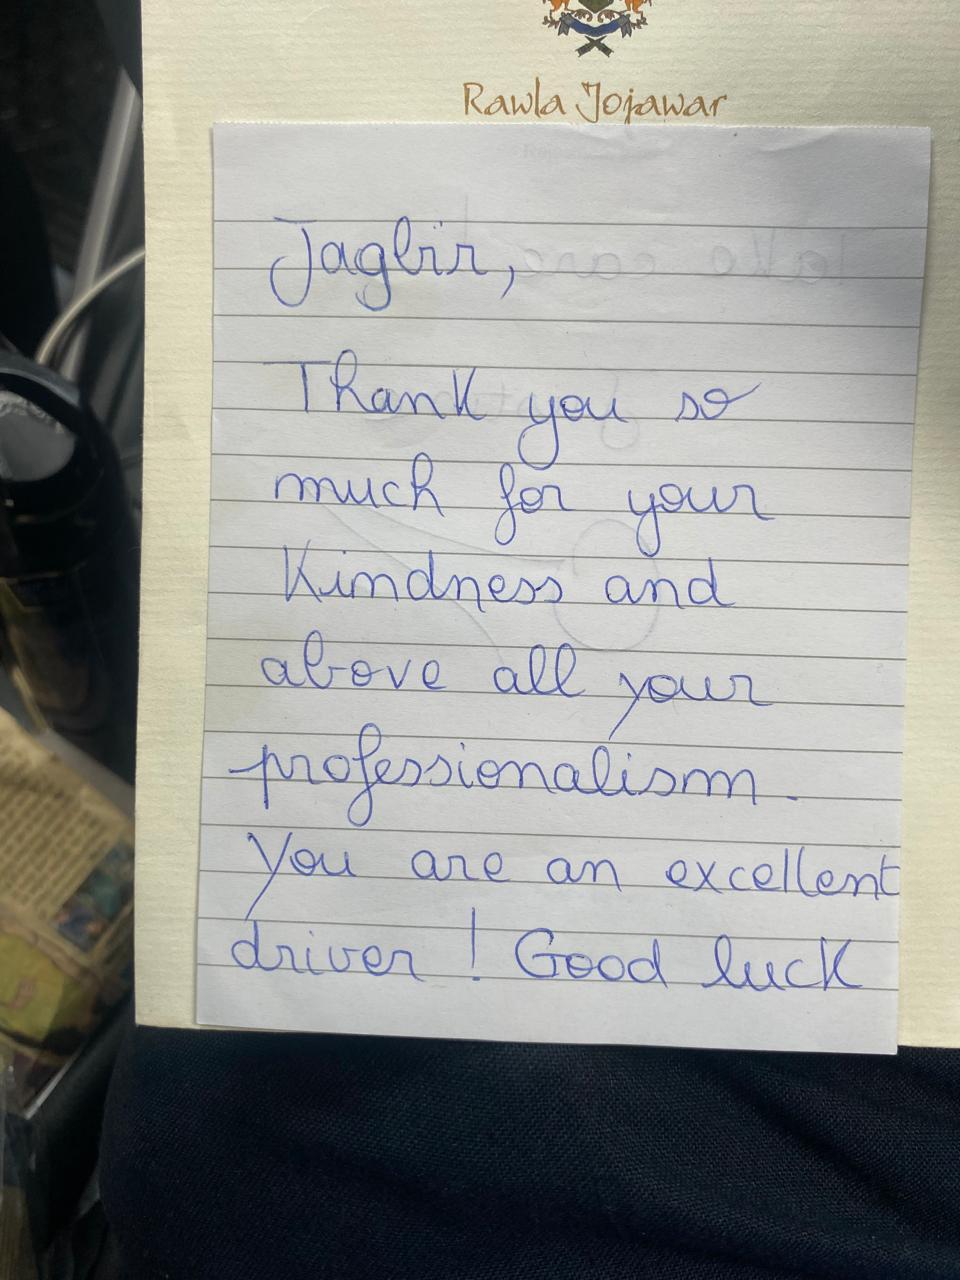 Rawla Jojawar
Jagbir,
Thank you so
much for your
Kindness and
above all your
professionalism.
You are an excellent
driver! Good luck